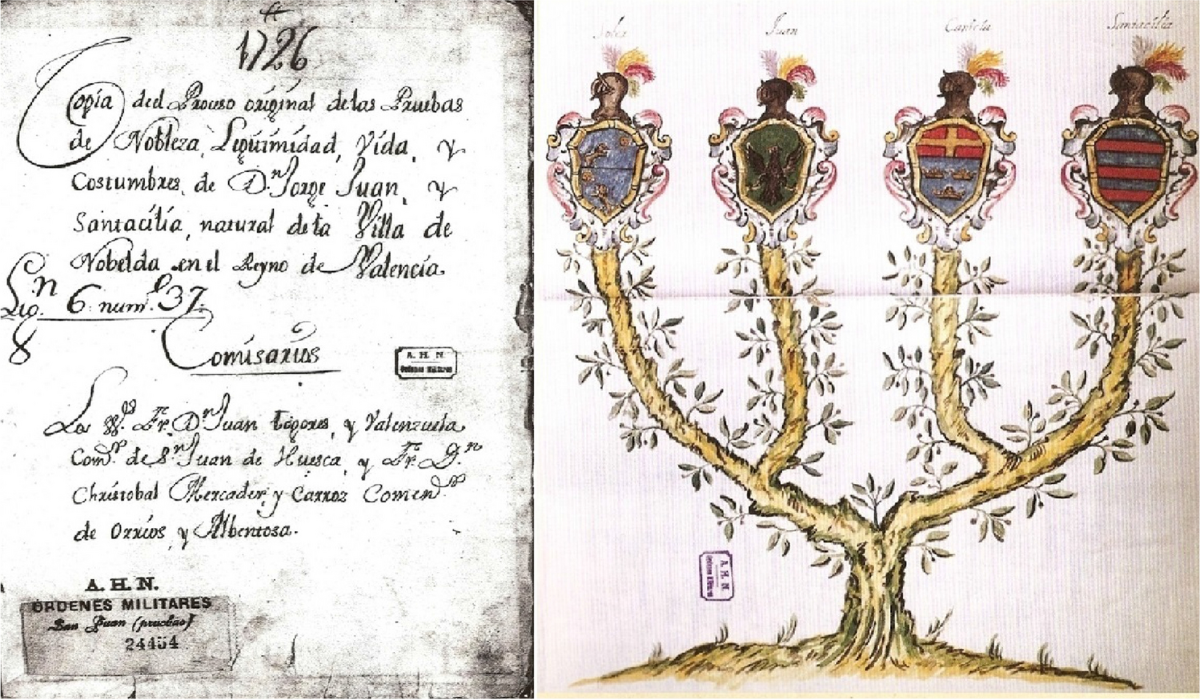 1726
Copia del Proceso original de las Pruebas
de Nobleza, Legitimidad, Vida, y
Costumbres, de D.ⁿ Jorge Juan, y
Santacilia, natural de la Villa de
Nobelda en el Reyno de Valencia.
Lig.ⁿ 6 num.º 37.
8
Comisarios
A. H. N.
Ordenes Militares
Los SS.ʳᵉˢ Fr. D.ⁿ Juan y Valenzuela
Com.ʳ de S.ⁿ Juan de Huesca, y Fr. D.ⁿ
Christobal Mercader, y Carroz Comen.ᵒʳ
de Orrios y Albentosa.
A. H. N.
ÓRDENES MILITARES
San Juan (pruebas)
24454
Juan
Santacilia
A. H. N.
Ordenes Militares